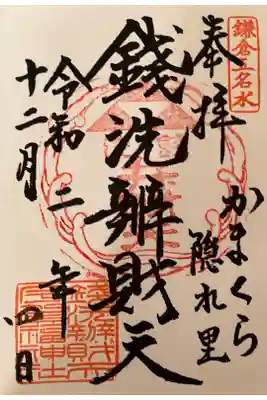 鎌倉五名水
奉拝
かまくら
隠れ里
錢洗辨財天
令和二年
十二月
四日